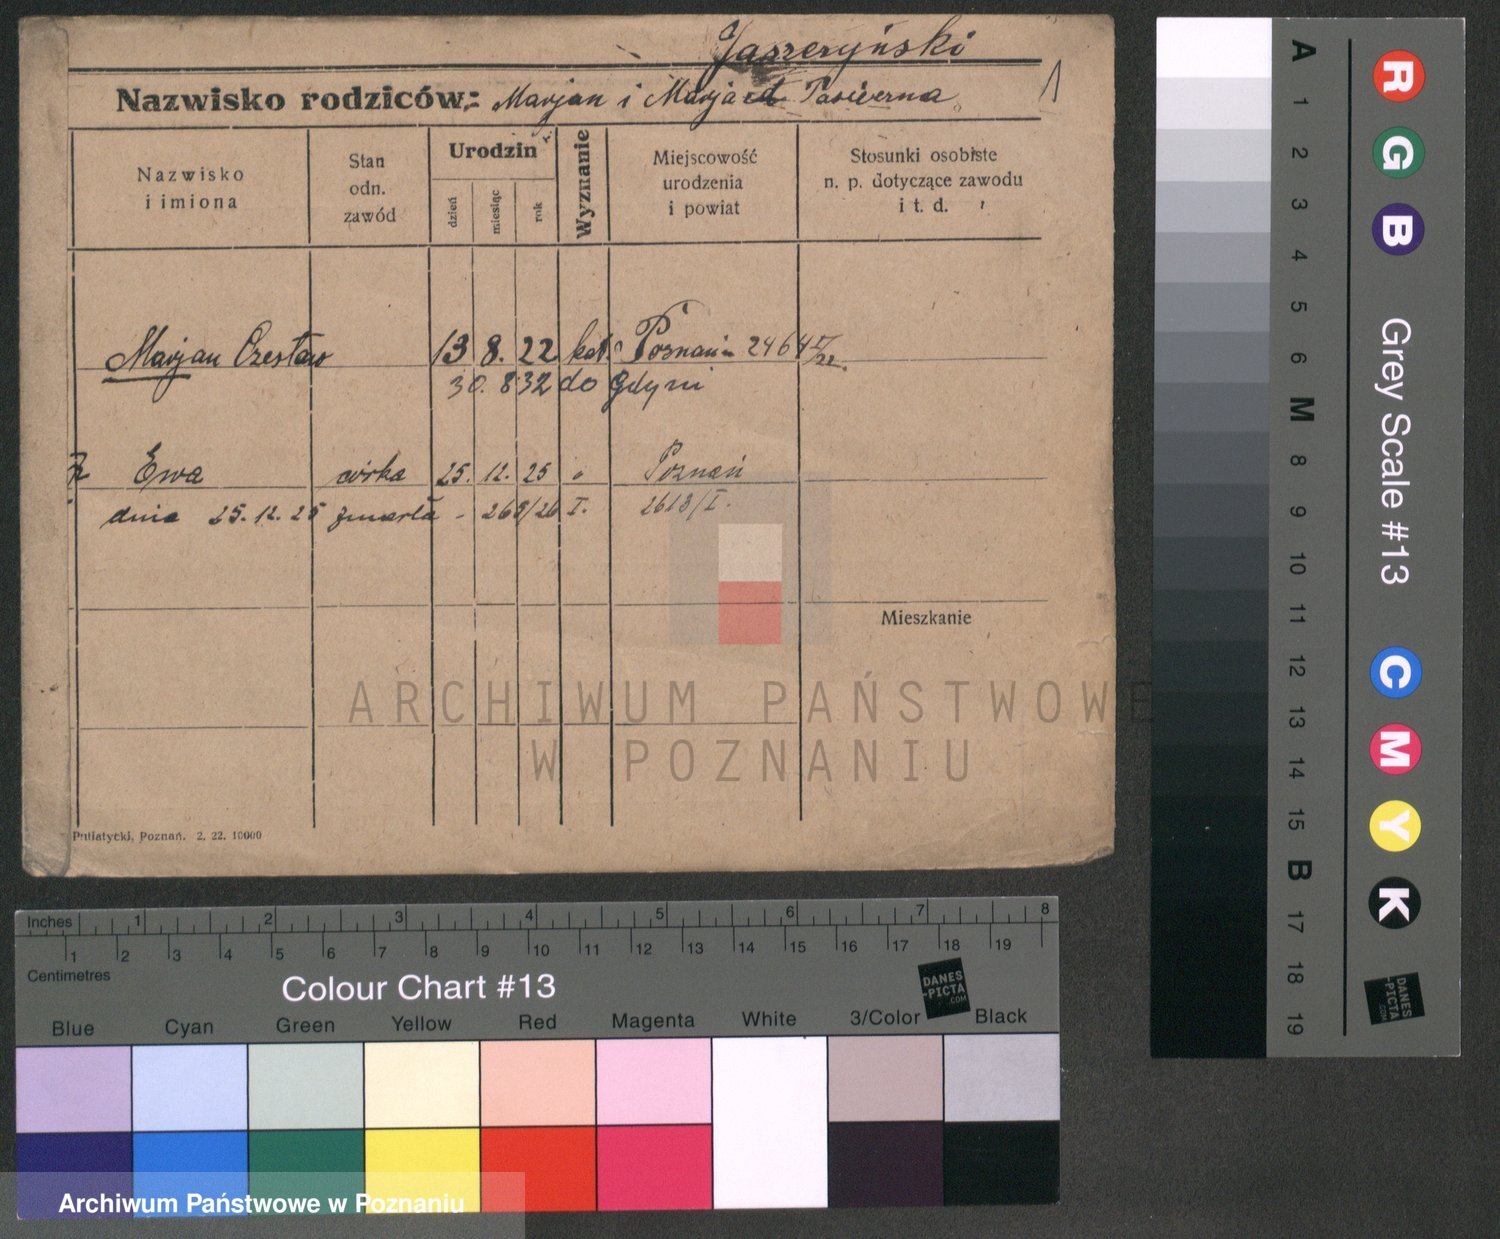 Jaszczyński
Nazwisko rodziców: Marjan i Marja
Nazwisko
i imiona
Stan
odn.
zawód
Urodzin
dzień
miesiąc
rok
Wyznanie
Miejscowość
urodzenia
i powiat
Stosunki osobiste
n. p. dotyczące zawodu
i t. d.
Marjan Czesław 13 8. 22 kat. Poznań
30. 8 32 do Gdyni
Ewa córka 25. 12. 25 " Poznań
dnia 25. 12. 25 zmarła - 269/26 I. 2613/I.
Mieszkanie
ARCHIWUM PAŃSTWOWE
W POZNANIU
Putiatycki, Poznań. 2. 22. 10000
Inches 1 2 3 4 5 6 7 8
1 2 3 4 5 6 7 8 9 10 11 12 13 14 15 16 17 18 19
Centimetres
Colour Chart #13
DANES
-PICTA
.COM
Blue Cyan Green Yellow Red Magenta White 3/Color Black
Archiwum Państwowe w Poznaniu
A 1 2 3 4 5 6 M 8 9 10 11 12 13 14 15 B 17 18 19
R G B Grey Scale #13 C M Y K
DANES
-PICTA
.COM